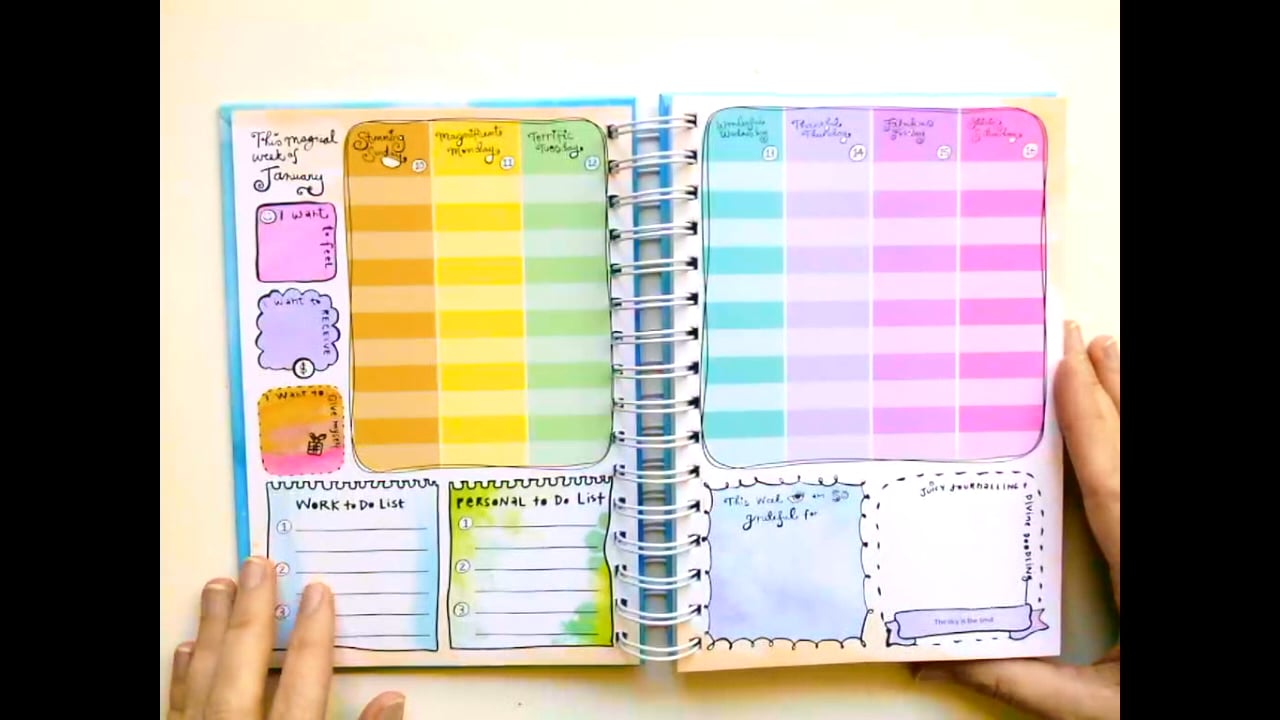 This magical
week of
January
Stunning
Sunday
10
Magnificent
Monday
11
Terrific
Tuesday
12
Wonderful
Wednesday
13
Thankful
Thursday
14
Fabulous
Friday
15
Saturday
16
I want
to feel
I want to
RECEIVE
$
I want to
Give myself
WORK to Do List
1
2
3
PERSONAL to Do List
1
2
3
This week I am so
grateful for
JUICY JOURNALLING &
DIVINE DOODLING
The sky is the limit